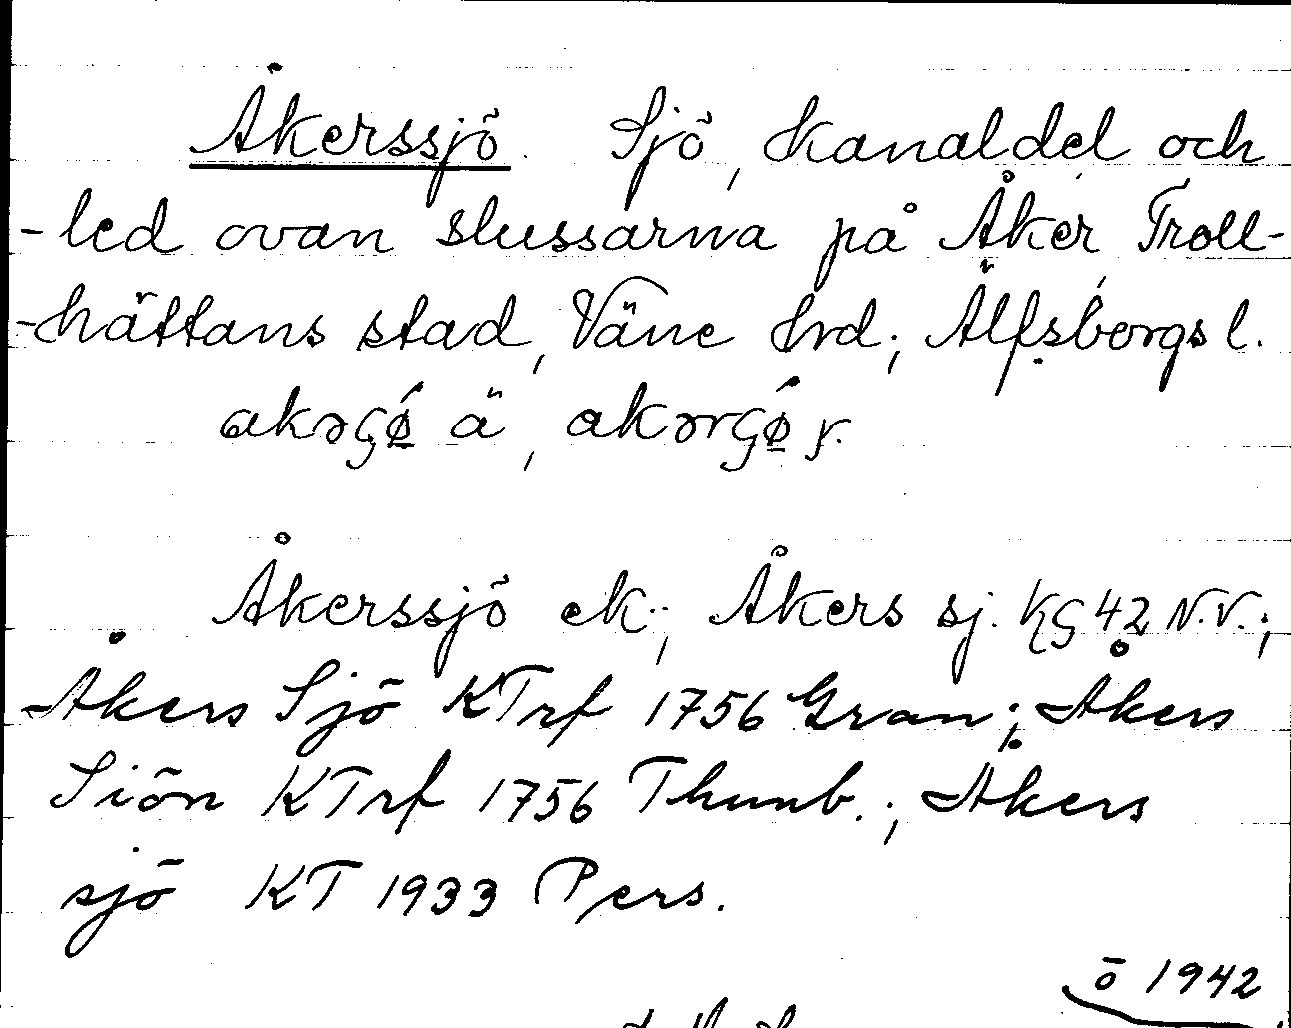 Åkerssjö. Sjö, kanaldel och
-led ovan slussarna på Åker, Troll-
-hättans stad, Väne hrd; Älfsborgs l.
akəʂǿ ä, akərʂǿ y.
Åkerssjö ek.; Åkers sj. KG 42 N.V.;
Åkers Sjö KTrf 1756 Gran; Åkers
Siön KTrf 1756 Thunb.; Åkers
sjö KT 1933 Pers.
ö 1942